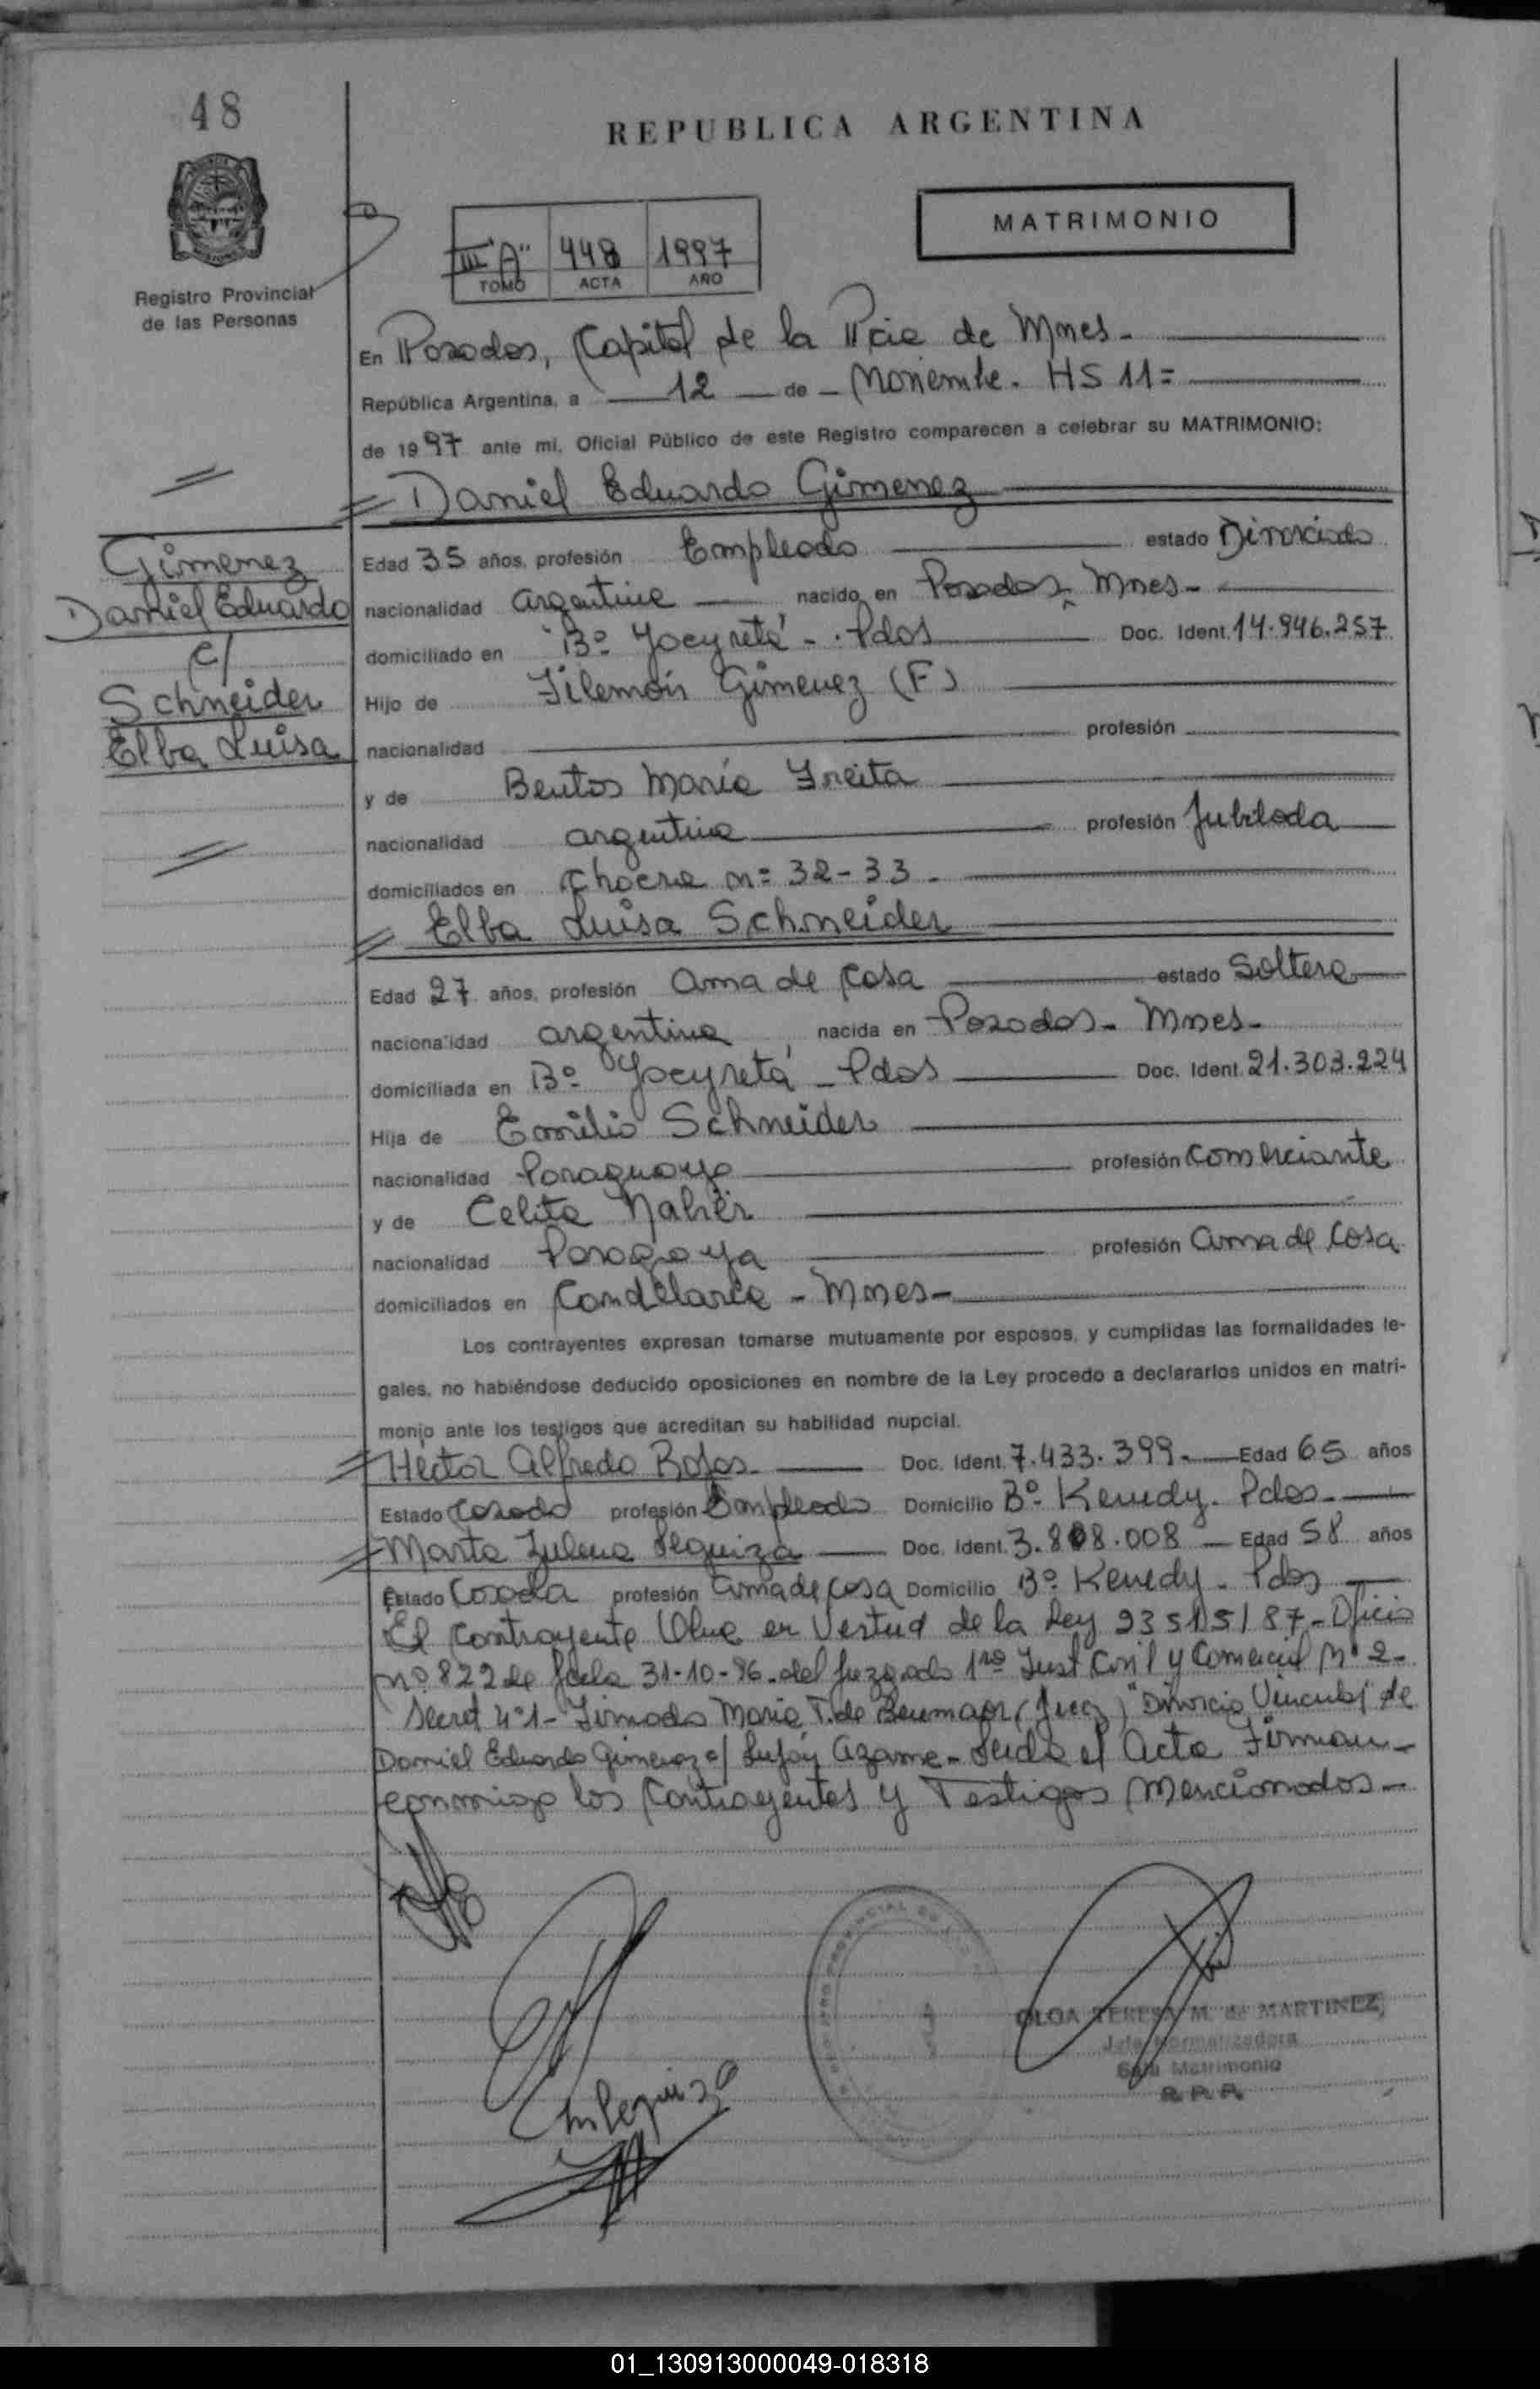 48
REPUBLICA ARGENTINA
MATRIMONIO
III "A" 448 1997
TOMO ACTA AÑO
Registro Provincial
de las Personas
En Posadas, Capital de la Pcia de Mnes.
República Argentina, a 12 de Noviembre. HS 11=
de 1997 ante mi, Oficial Público de este Registro comparecen a celebrar su MATRIMONIO:
Daniel Eduardo Gimenez
Gimenez
Daniel Eduardo
c/
Schneider
Elba Luisa
Edad 35 años, profesión Empleado estado Divorciado
nacionalidad argentina nacido en Posadas - Mnes-
domiciliado en Bº Yacyretá - Pdas Doc. Ident. 14.946.257
Hijo de Filemón Gimenez (F)
nacionalidad profesión
y de Bentos María
nacionalidad argentina profesión Jubilada
domiciliados en Chacra nº 32-33-
Elba Luisa Schneider
Edad 27 años, profesión Ama de Casa estado Soltera
nacionalidad argentina nacida en Posadas - Mnes-
domiciliada en Bº Yacyretá - Pdas Doc. Ident. 21.303.224
Hija de Emilio Schneider
nacionalidad Paraguaya profesión Comerciante
y de Celita
nacionalidad Paraguaya profesión Ama de Casa
domiciliados en Candelaria - Mnes-
Los contrayentes expresan tomarse mutuamente por esposos, y cumplidas las formalidades le-
gales, no habiéndose deducido oposiciones en nombre de la Ley procedo a declararlos unidos en matri-
monio ante los testigos que acreditan su habilidad nupcial.
Héctor Alfredo Rojas Doc. Ident. 7.433.399. Edad 65 años
Estado Casado profesión Empleado Domicilio Bº Kenedy. Pdas.
Marta Zulena Seguiza Doc. Ident. 3.808.008 Edad 58 años
Estado Casada profesión Ama de Casa Domicilio Bº Kenedy. Pdas
El Contrayente en Vertud de la Ley 23515/87- Oficio
nº 822 de fecha 31-10-96. del Juzgado 1ro Inst Civil y Comercial Nº 2-
Secret nº1- Firmado María T. de (Juez) "Divorcio Vincular" de
Daniel Eduardo Gimenez c/ Leída el Acta Firman
conmigo los Contrayentes y Testigos Mencionados-
OLGA TERESA M. de MARTINEZ
Jefa Normalizadora
Sala Matrimonio
R.P.P.
01_130913000049-018318